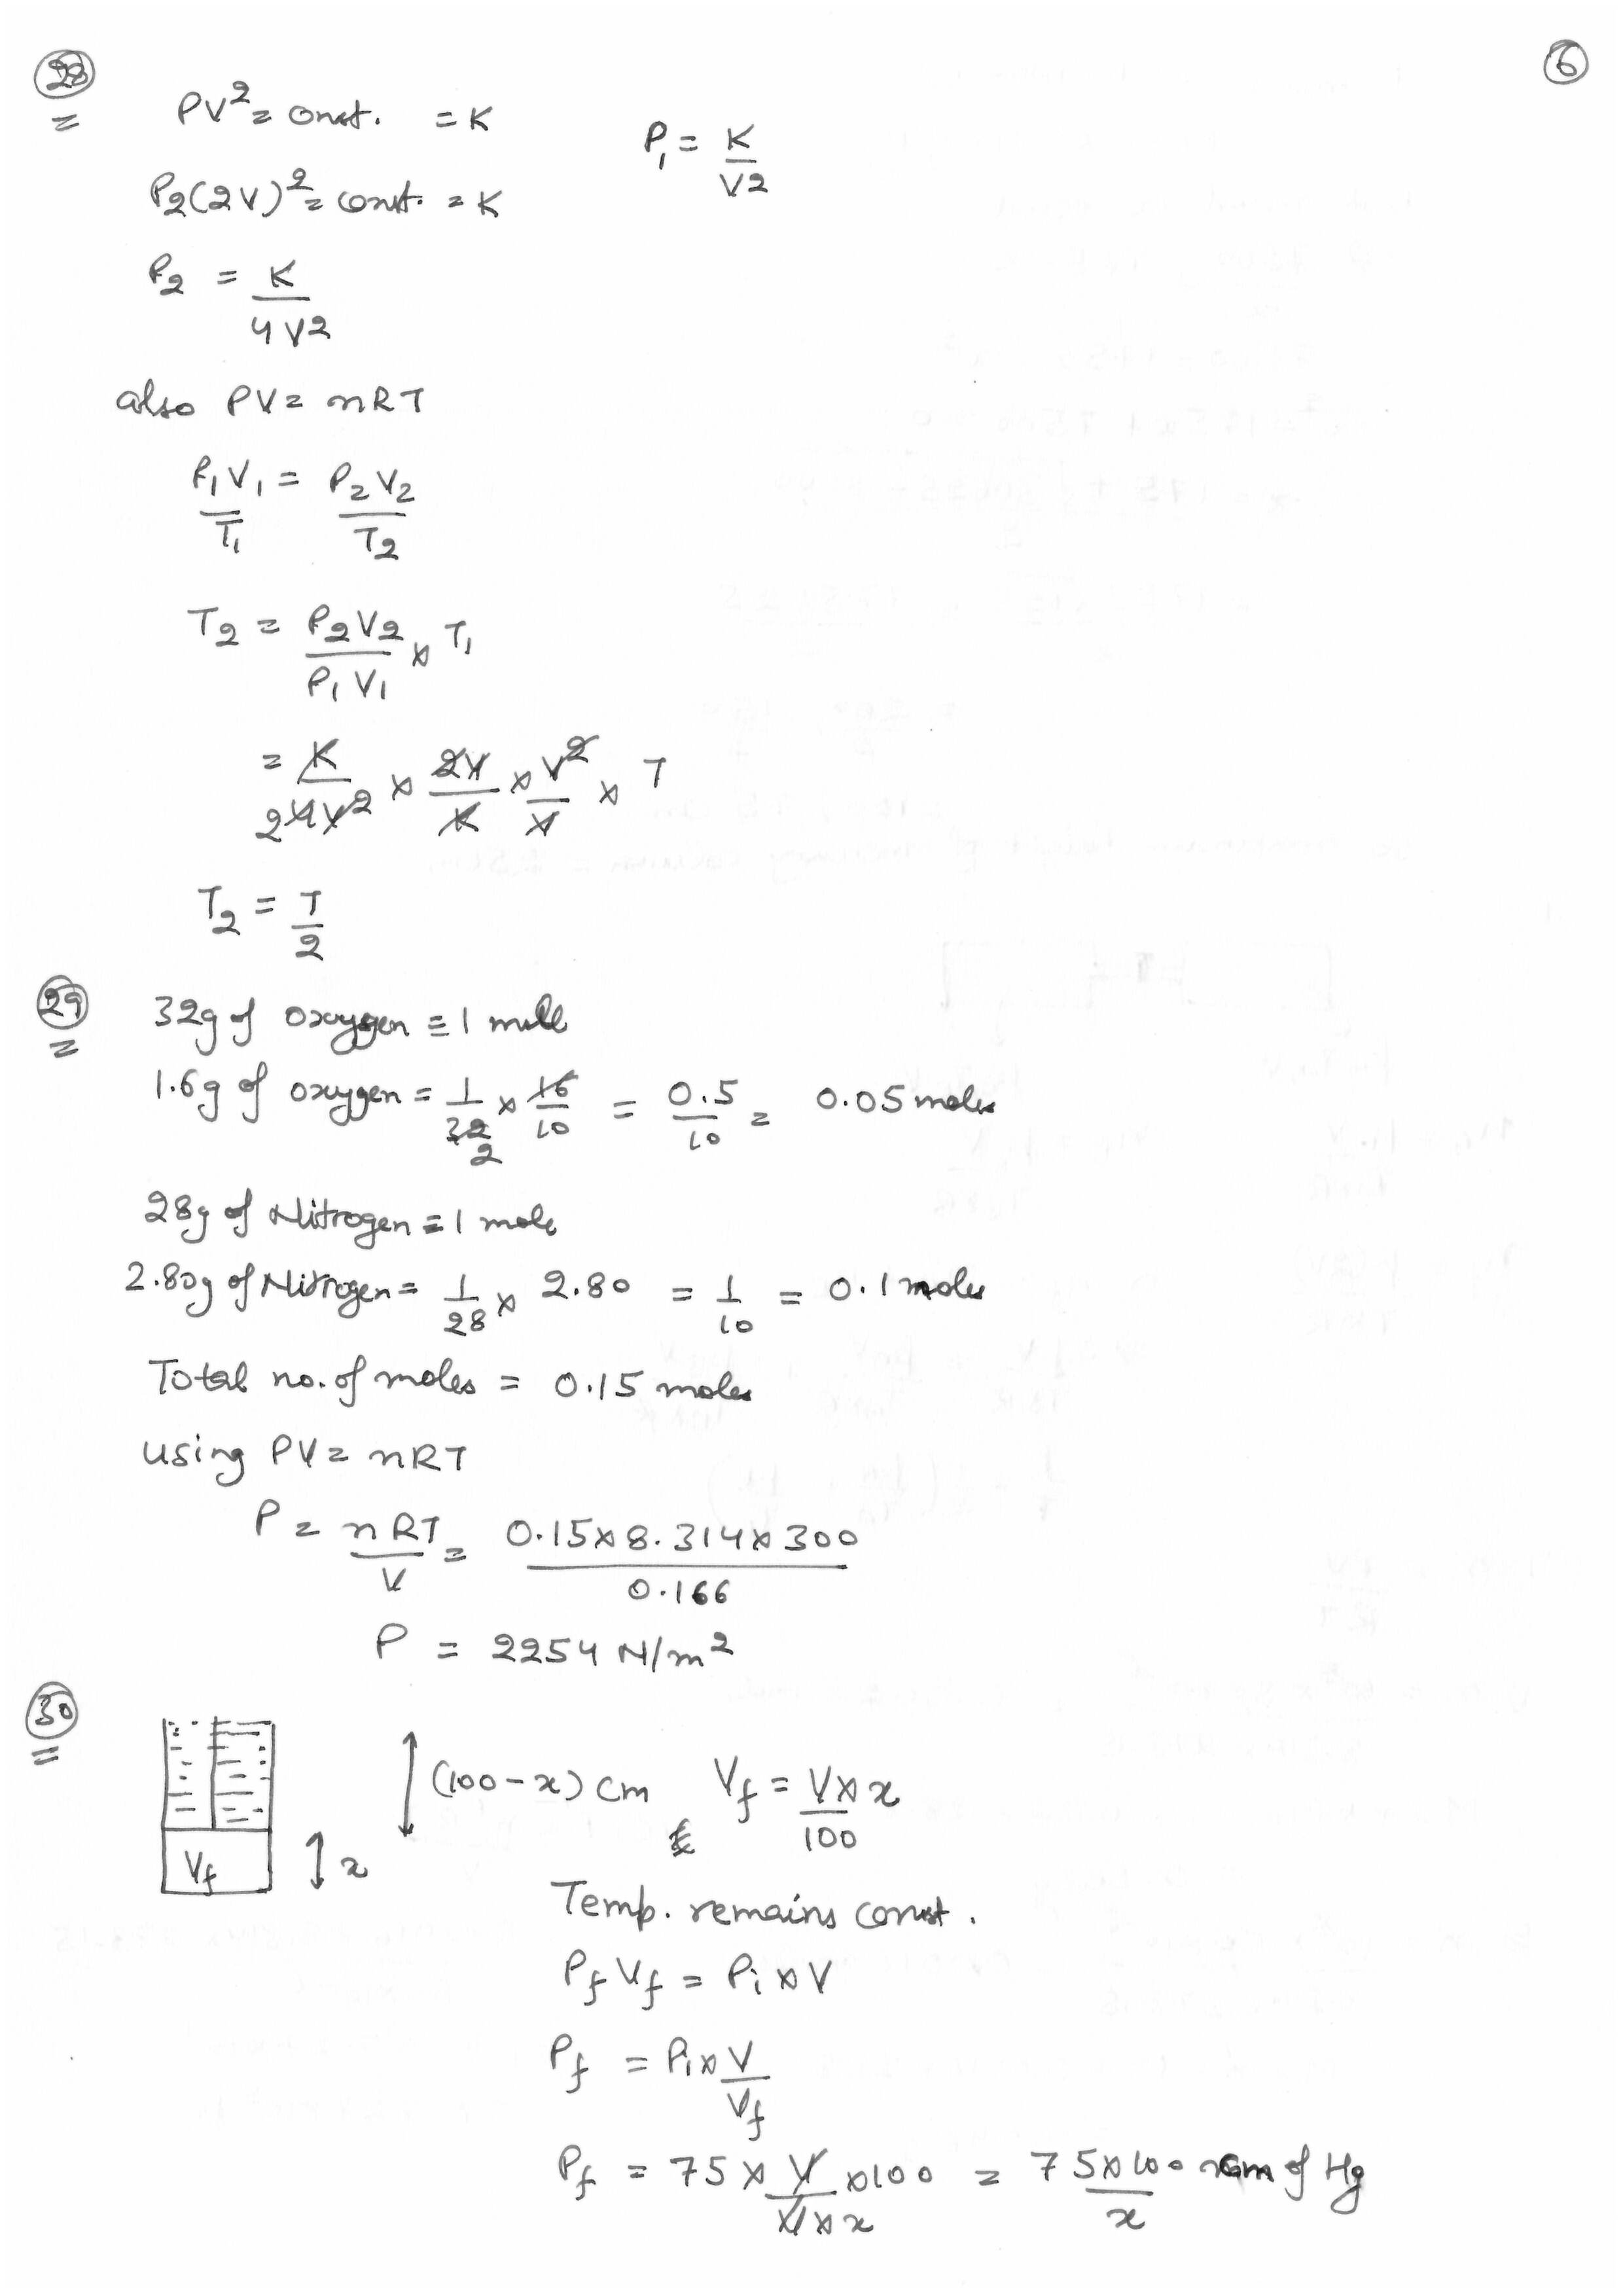 28
6
PV² = Const. = K
P₁ = K/V2
P₂(2V)² = Const. = K
P₂ = K/4V2
also PV = nRT
P₁V₁/T₁ = P₂V₂/T₂
T₂ = P₂V₂/P₁V₁ × T₁
= K/2 4V2 × 2V/K × V²/V × T
T₂ = T/2
29
32g of Oxygen ≡ 1 mole
1.6g of oxygen = 1/32 2 × 16/10 = 0.5/10 = 0.05 moles
28g of Nitrogen ≡ 1 mole
2.80g of Nitrogen = 1/28 × 2.80 = 1/10 = 0.1 moles
Total no. of moles = 0.15 moles
using PV = nRT
P = nRT/V = 0.15×8.314×300/0.166
P = 2254 N/m²
30
(100-x) cm
V_f = V×x/100
V_f
x
Temp. remains const.
P_f V_f = P_i × V
P_f = P_i × V/V_f
P_f = 75 × V/V×x ×100 = 75×100/x cm of Hg